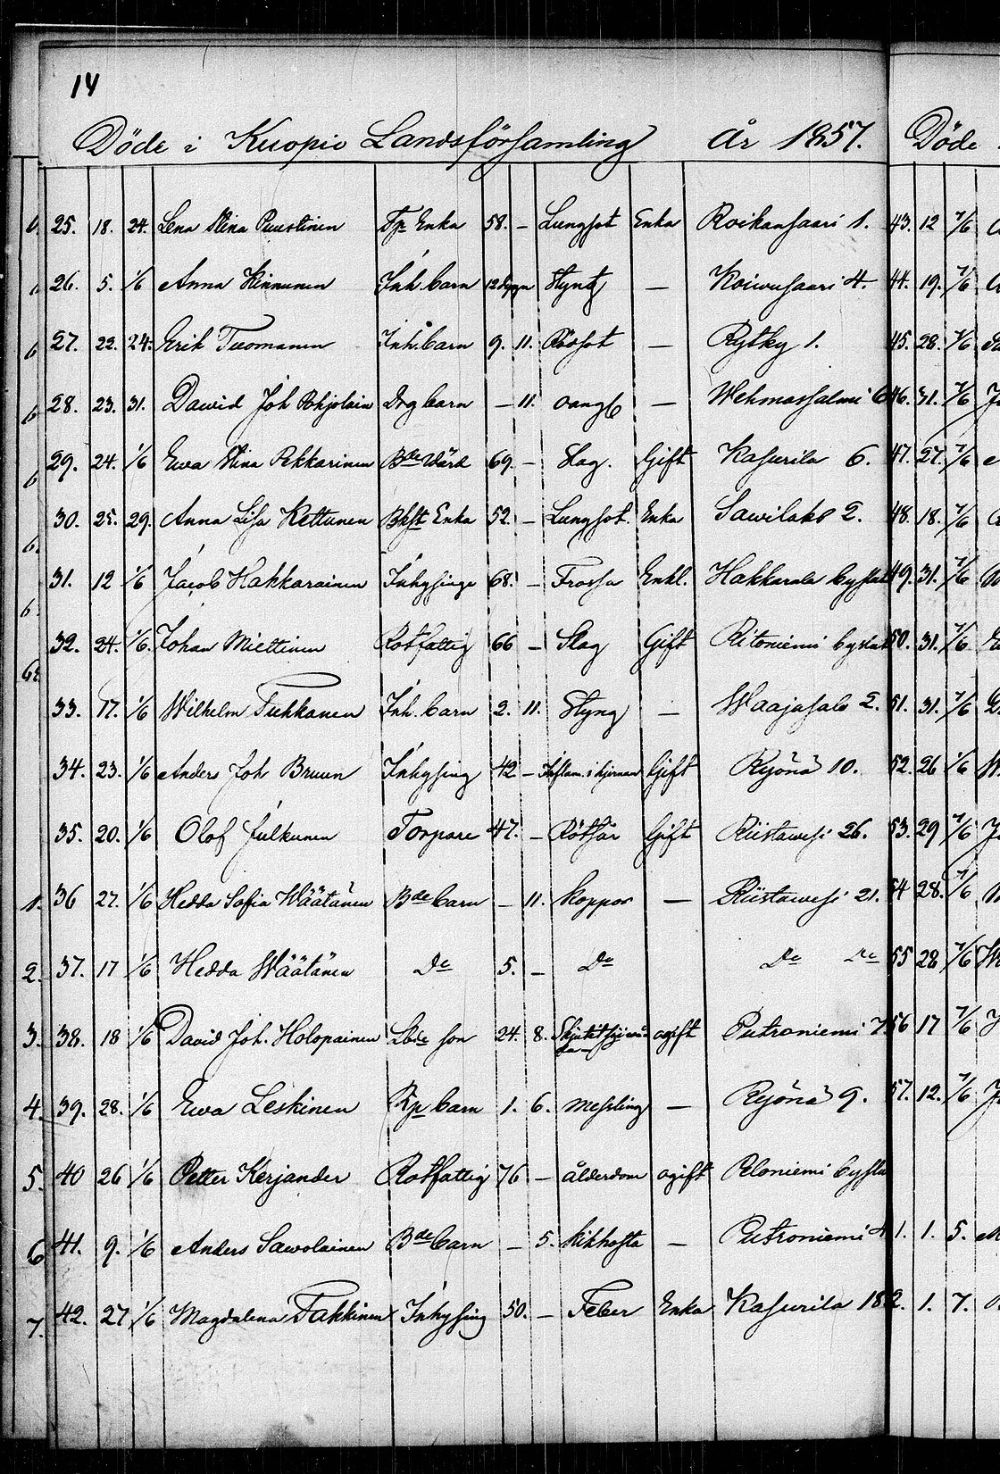 14
Döde i Kuopio Landsförsamling År 1857. Döde
25. 18. 24. Lena Stina Puustinen Tp Enka 58. – Lungsot Enka Roikansaari 1. 43. 12 7/6
26. 5. 1/6 Anna Kinnunen Inh. barn 12 dygn Styng – Koiwusaari 4. 44. 19. 7/6
27. 22. 24. Erik Tuomanen Inh. barn 9. 11. Rödsot – Rytky 1. 45. 28. 7/6
28. 23. 31. Dawid Joh Pohjolain Drg barn – 11. oangb – Wehmassalmi 6. 46. 31. 7/6
29. 24. 1/6 Ewa Stina Pekkarinen Bde Wärd 69. – Slag. Gift Kasurila 6. 47. 27. 7/6
30. 25. 29. Anna Lisa Kettunen Bkft Enka 52. – Lungsot. Enka Sawilaks 2. 48. 18. 7/6
31. 12 1/6 Jacob Hakkarainen Inhysinge 68. – Frossa Enkl. Hakkarala byslat 49. 31. 7/6
32. 24. 1/6. Johan Miettinen Rotfattig 66 – Slag Gift Ritoniemi byslat 50. 31. 7/6
33. 17. 1/6 Wilhelm Tuhkanen Inh. barn 2. 11. Styng – Waajasalo 2. 51. 31. 7/6
34. 23. 1/6 Anders Joh Bruun Inhysing 42 – Inflam. i hjernan Gift Ryönä 10. 52. 26 1/6
35. 20. 1/6 Olof Julkunen Torpare 47. – Rötsår Gift Riistawesi 26. 53. 29 7/6
1. 36 27. 1/6 Hedda Sofia Wäätänen Bde barn – 11. koppor – Riistawesi 21. 54 28. 7/6
2. 37. 17 1/6 Hedda Wäätänen Do 5. – Do Do Do 55 28 7/6
3. 38. 18 1/6 David Joh. Holopainen Lbde son 24. 8. ogift Putroniemi 7. 56 17 7/6
4. 39. 28. 1/6 Ewa Leskinen Rp barn 1. 6. messling – Ryönä 9. 57. 12. 7/6
5. 40 26 1/6 Petter Kerjander Rotfattig 76 – ålderdom ogift Peloniemi bysla
6 41. 9. 1/6 Anders Sawolainen Bde barn – 5. kikhosta – Putroniemi 4 1. 1. 5.
7. 42. 27 1/6 Magdalena Takkinen Inhysing 50. – Feber Enka Kasurila 18 2. 1. 7.